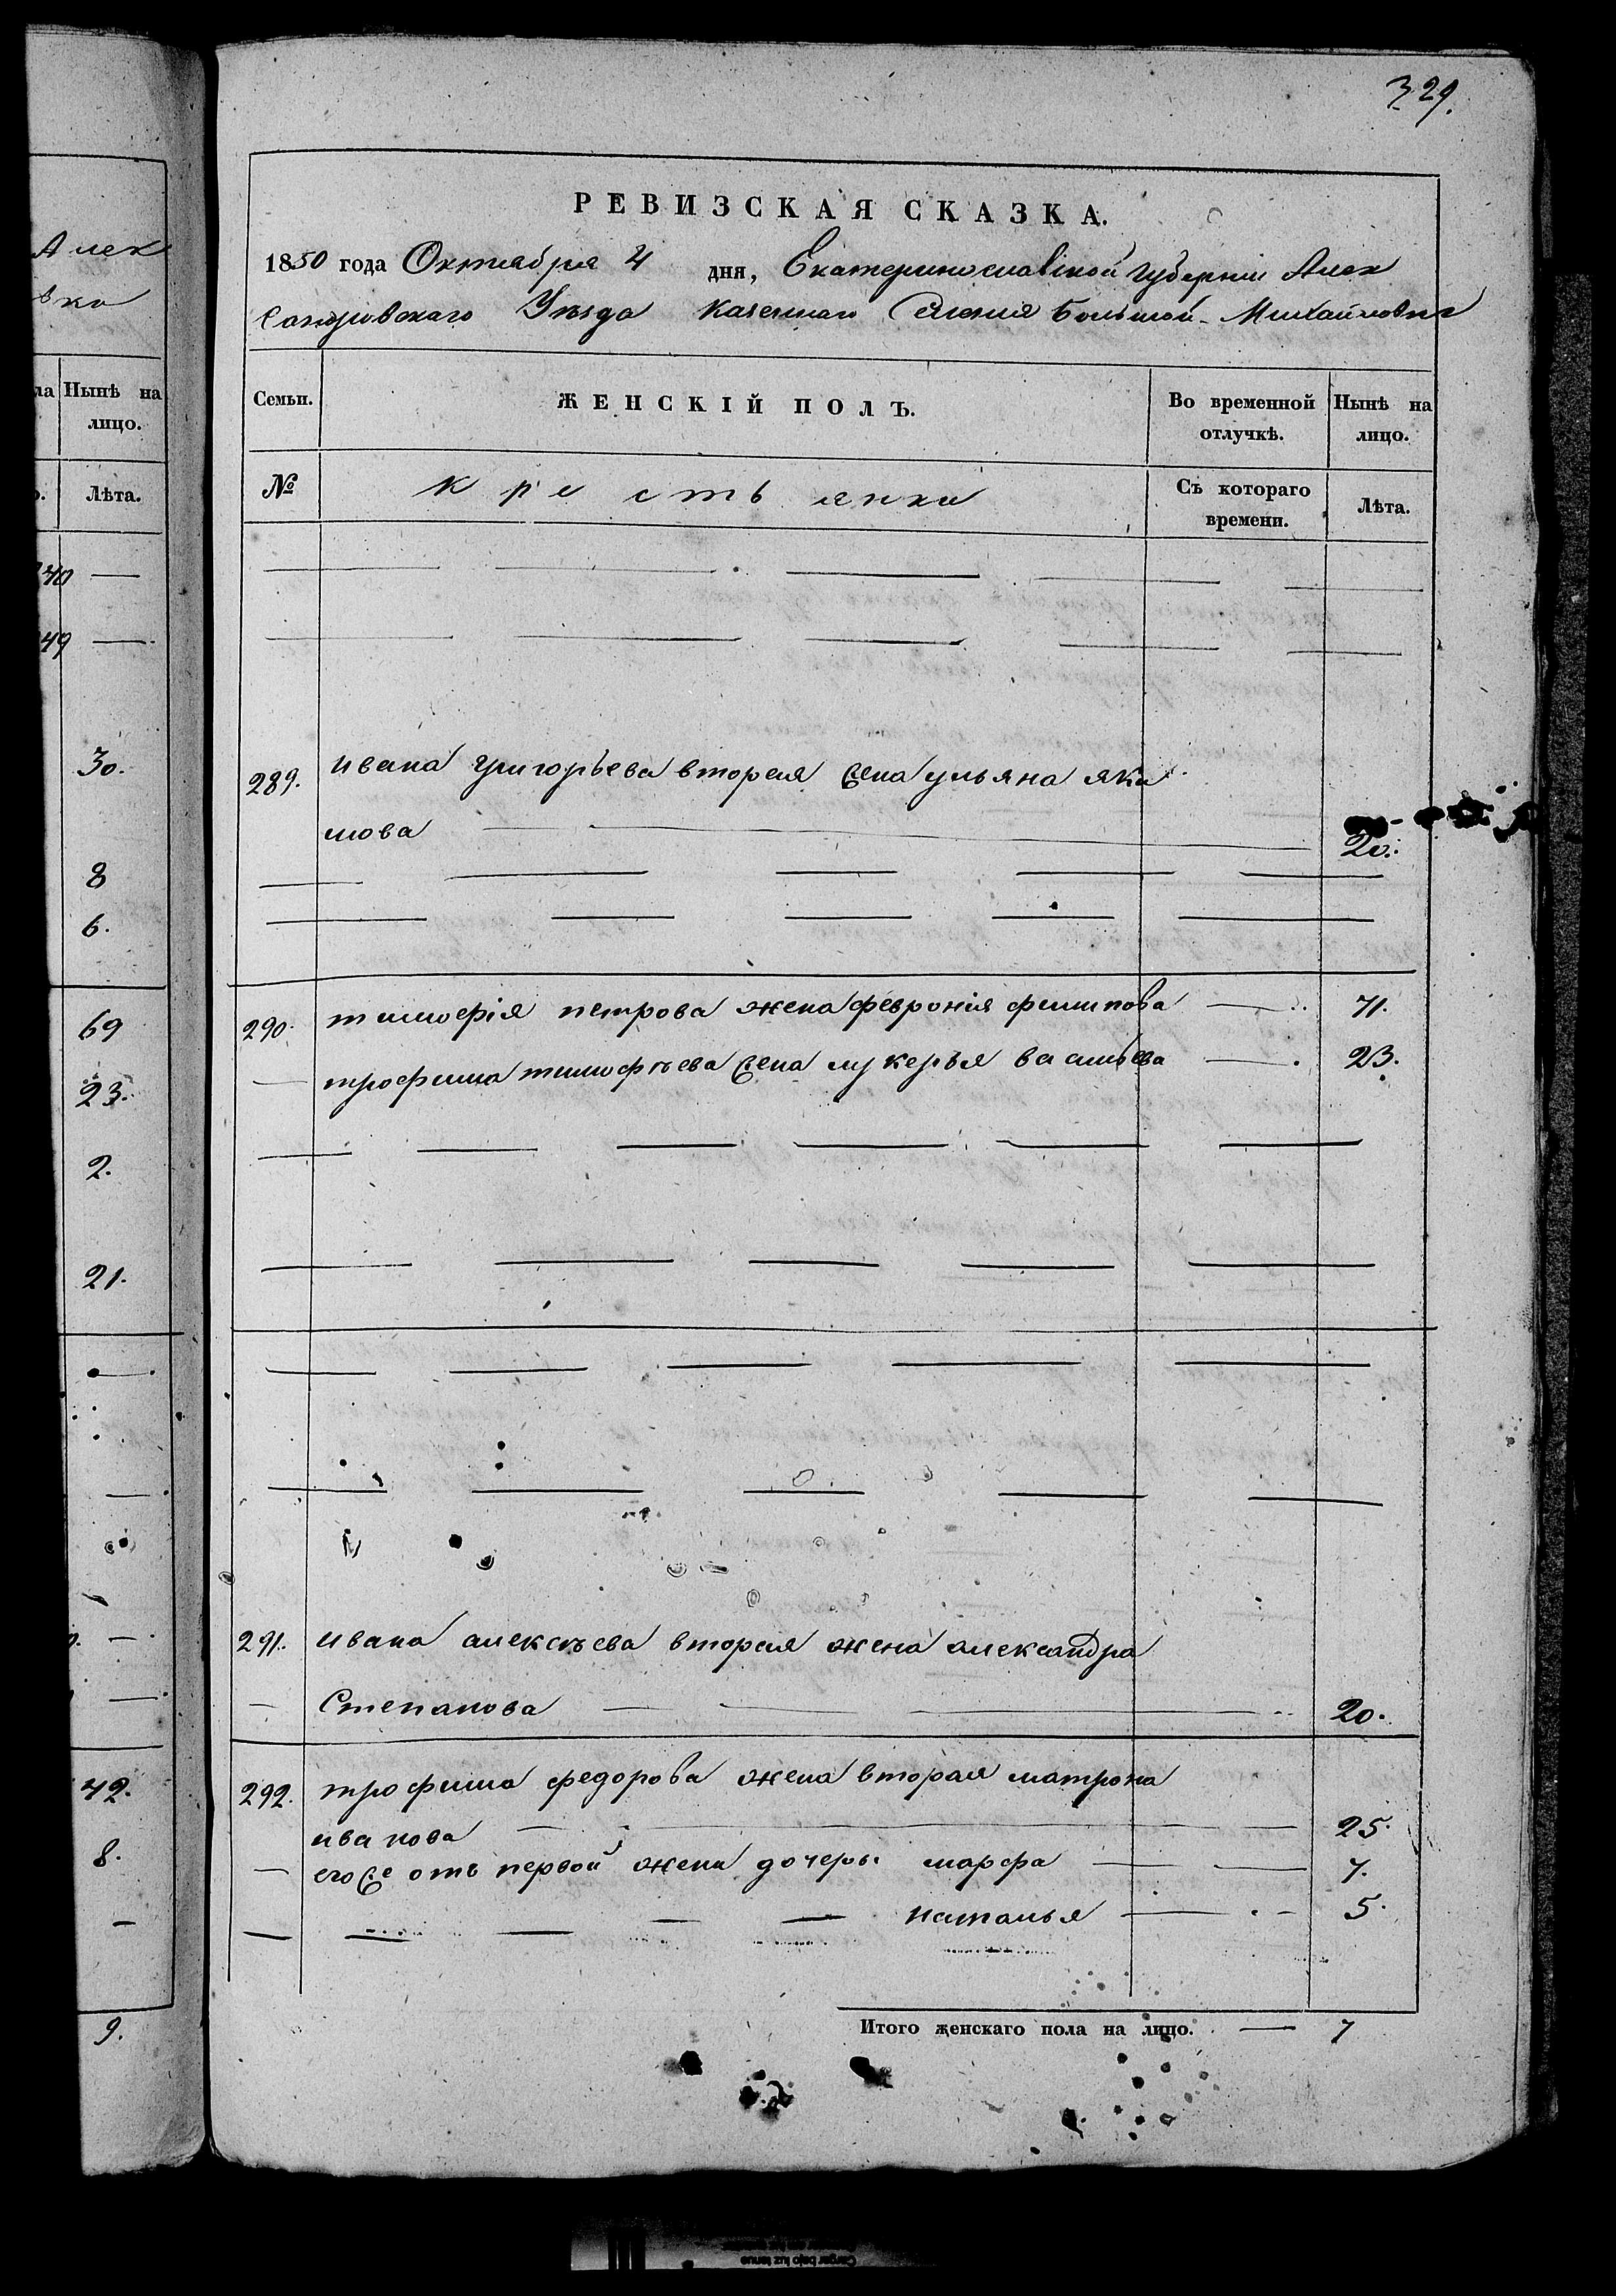 Алек
вка
329.
РЕВИЗСКАЯ СКАЗКА.
1850 года Октября 4 дня, Екатеринославской губерніи Алек
сандровскаго Уѣзда Казеннаго Селенія Большой-Михайловки
ла Нынѣ на лицо.
Лѣта.
40 —
49 —
30.
8
6.
69
23.
2.
21.
42.
8.
9.
Семьи. ЖЕНСКІЙ ПОЛЪ. Во временной отлучкѣ. Нынѣ на лицо.
№ крестьянки Съ котораго времени. Лѣта.
289. ивана григорьева вторая жена ульяна яки
мова 20.
290. тимофія петрова жена февронія филипова 71.
трофима тимофѣева жена лукерья 23.
291. ивана алексѣева вторая жена александра
Степанова 20.
292. трофима федорова жена вторая матрона
иванова 25.
егоже отъ первой жены дочерь марфа 7.
наталья 5.
Итого женскаго пола на лицо. — 7